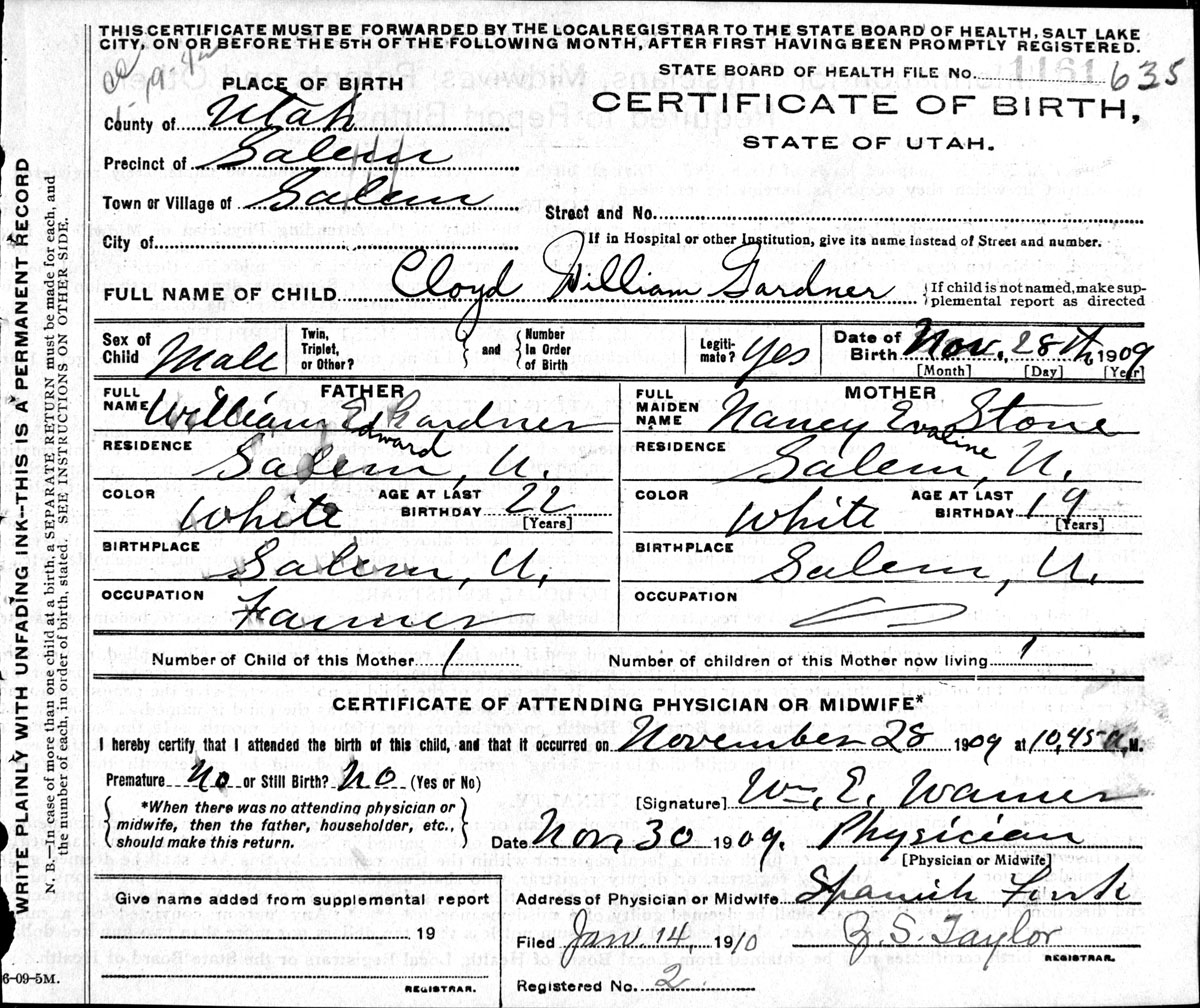 THIS CERTIFICATE MUST BE FORWARDED BY THE LOCAL REGISTRAR TO THE STATE BOARD OF HEALTH, SALT LAKE
CITY, ON OR BEFORE THE 5TH OF THE FOLLOWING MONTH, AFTER FIRST HAVING BEEN PROMPTLY REGISTERED.
STATE BOARD OF HEALTH FILE No. 1161 635
PLACE OF BIRTH
CERTIFICATE OF BIRTH,
STATE OF UTAH.
County of Utah
Precinct of Salem
Town or Village of Salem
Street and No.
City of
If in Hospital or other Institution, give its name instead of Street and number.
FULL NAME OF CHILD Cloyd William Gardner
{If child is not named, make sup-
plemental report as directed
Sex of Child Male
Twin, Triplet, or Other? } and { Number in Order of Birth
Legiti-mate? Yes
Date of Birth Nov. 28th 1909
[Month] [Day] [Year]
FATHER
FULL NAME William E Gardner
Edward
RESIDENCE Salem, U.
COLOR White AGE AT LAST BIRTHDAY 22 [Years]
BIRTHPLACE Salem, U.
OCCUPATION Farmer
MOTHER
FULL MAIDEN NAME Nancy Evaline Stone
RESIDENCE Salem, U.
COLOR White AGE AT LAST BIRTHDAY 19 [Years]
BIRTHPLACE Salem, U.
OCCUPATION
Number of Child of this Mother 1 Number of children of this Mother now living 1
CERTIFICATE OF ATTENDING PHYSICIAN OR MIDWIFE*
I hereby certify that I attended the birth of this child, and that it occurred on November 28 1909 at 10,45 a.M.
Premature No or Still Birth? No (Yes or No)
{ *When there was no attending physician or
midwife, then the father, householder, etc.,
should make this return. }
[Signature] Wm. E. Warner
Date Nov. 30 1909. Physician
[Physician or Midwife]
Give name added from supplemental report
19
REGISTRAR.
Address of Physician or Midwife Spanish Fork
Filed Jan. 14, 1910 Z. S. Taylor
REGISTRAR.
Registered No. 2
6-09-5M.
WRITE PLAINLY WITH UNFADING INK--THIS IS A PERMANENT RECORD
N. B.—In case of more than one child at a birth, a SEPARATE RETURN must be made for each, and
the number of each, in order of birth, stated. SEE INSTRUCTIONS ON OTHER SIDE.